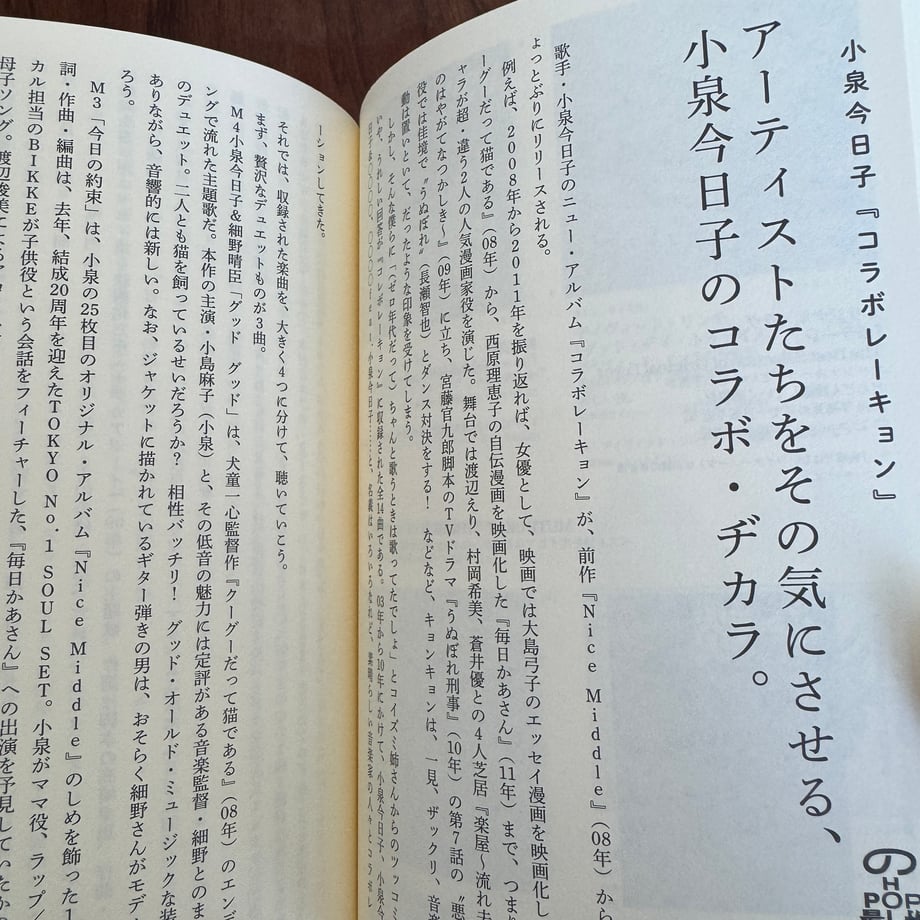 小泉今日子『コラボレーキョン』
アーティストたちをその気にさせる、
小泉今日子のコラボ・ヂカラ。
歌手・小泉今日子のニュー・アルバム『コラボレーキョン』が、前作『Nice Middle』(08年)から
ょっとぶりにリリースされる。
例えば、2008年から2011年を振り返れば、女優として、映画では大島弓子のエッセイ漫画を映画化し
ーグーだって猫である』(08年)から、西原理恵子の自伝漫画を映画化した『毎日かあさん』(11年)まで、つまり
ャラが超・違う2人の人気漫画家役を演じた。舞台では渡辺えり、村岡希美、蒼井優との4人芝居『楽屋〜流れ去
のはやがてなつかしき〜』(09年)に立ち、宮藤官九郎脚本のTVドラマ『うぬぼれ刑事』(10年)の第7話の〝悪
役では佳境で〝うぬぼれ〟(長瀬智也)とダンス対決をする! などなど、キョンキョンは、一見、ザックリ、音楽
動は置いといて、だったような印象を受けてしまう。
しかし、そんな僕らに「(ゼロ年代だって)ちゃんと歌うときは歌ってたでしょ」とコイズミ姉さんからのツッコミ
いぞ、うれしい回答が『コラボレーキョン』に収録された全14曲である。03年から10年にかけて、小泉今日子、小泉今
小泉今日子……と、名義はいろいろだけれど、素晴らしい音楽家の人々とコラボレ
ーションしてきた。
それでは、収録された楽曲を、大きく4つに分けて、聴いていこう。
まず、贅沢なデュエットものが3曲。
M4小泉今日子&細野晴臣「グッド グッド」は、犬童一心監督作『クーグーだって猫である』(08年)のエンデ
ングで流れた主題歌だ。本作の主演・小島麻子(小泉)と、その低音の魅力には定評がある音楽監督・細野とのま
のデュエット。二人とも猫を飼っているせいだろうか? 相性バッチリ! グッド・オールド・ミュージックな装
ありながら、音響的には新しい。なお、ジャケットに描かれているギター弾きの男は、おそらく細野さんがモデ
ろう。
M3「今日の約束」は、小泉の25枚目のオリジナル・アルバム『Nice Middle』のしめを飾った1
詞・作曲・編曲は、去年、結成20周年を迎えたTOKYO No.1 SOUL SET。小泉がママ役、ラップ/
カル担当のBIKKEが子供役という会話をフィーチャーした、『毎日かあさん』への出演を予見していたか
母子ソング。渡辺俊美による
の
H
POP